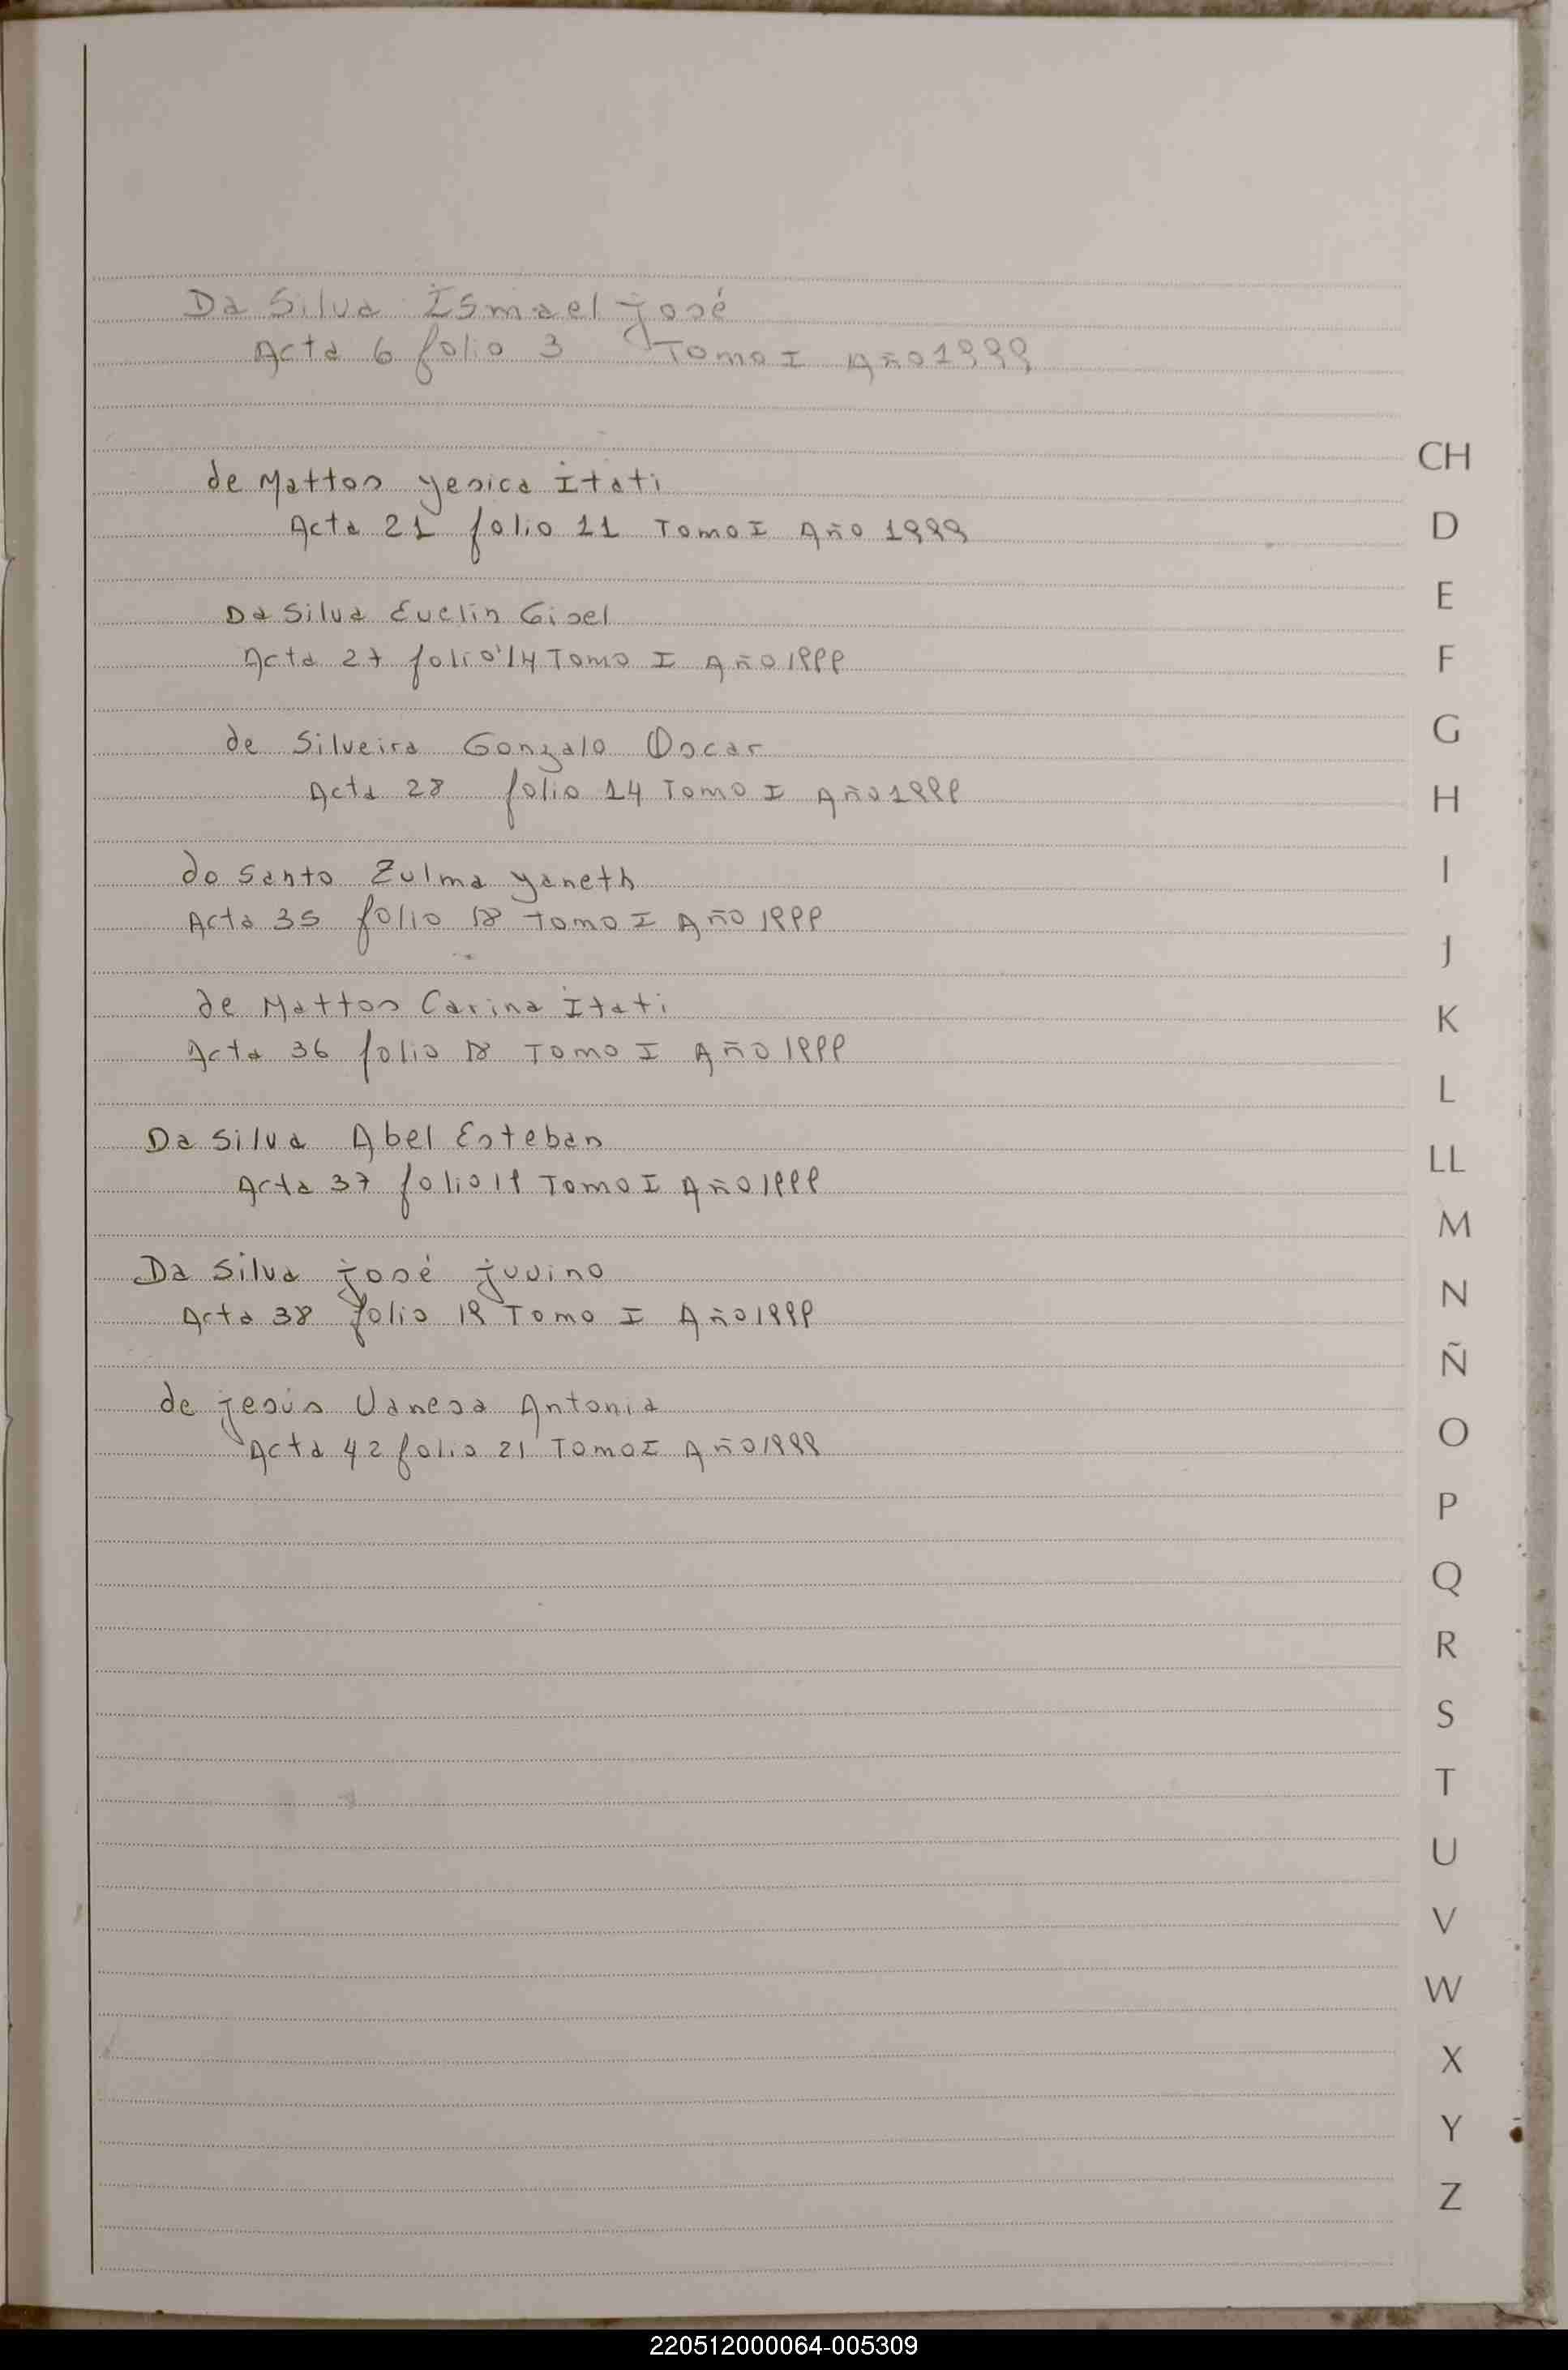 Da Silva Ismael José
Acta 6 folio 3 Tomo I Año 1999
de Mattos Yesica Itati
Acta 21 folio 11 Tomo I Año 1999
Da Silva Evelin Gisel
Acta 27 folio 14 Tomo I Año 1999
de Silveira Gonzalo Oscar
Acta 28 folio 14 Tomo I Año 1999
do Santo Zulma Yaneth
Acta 35 folio 18 Tomo I Año 1999
de Mattos Carina Itati
Acta 36 folio 18 Tomo I Año 1999
Da Silva Abel Esteban
Acta 37 folio 19 Tomo I Año 1999
Da Silva José Juvino
Acta 38 folio 19 Tomo I Año 1999
de Jesús Vanesa Antonia
Acta 42 folio 21 Tomo I Año 1999
CH
D
E
F
G
H
I
J
K
L
LL
M
N
Ñ
O
P
Q
R
S
T
U
V
W
X
Y
Z
220512000064-005309